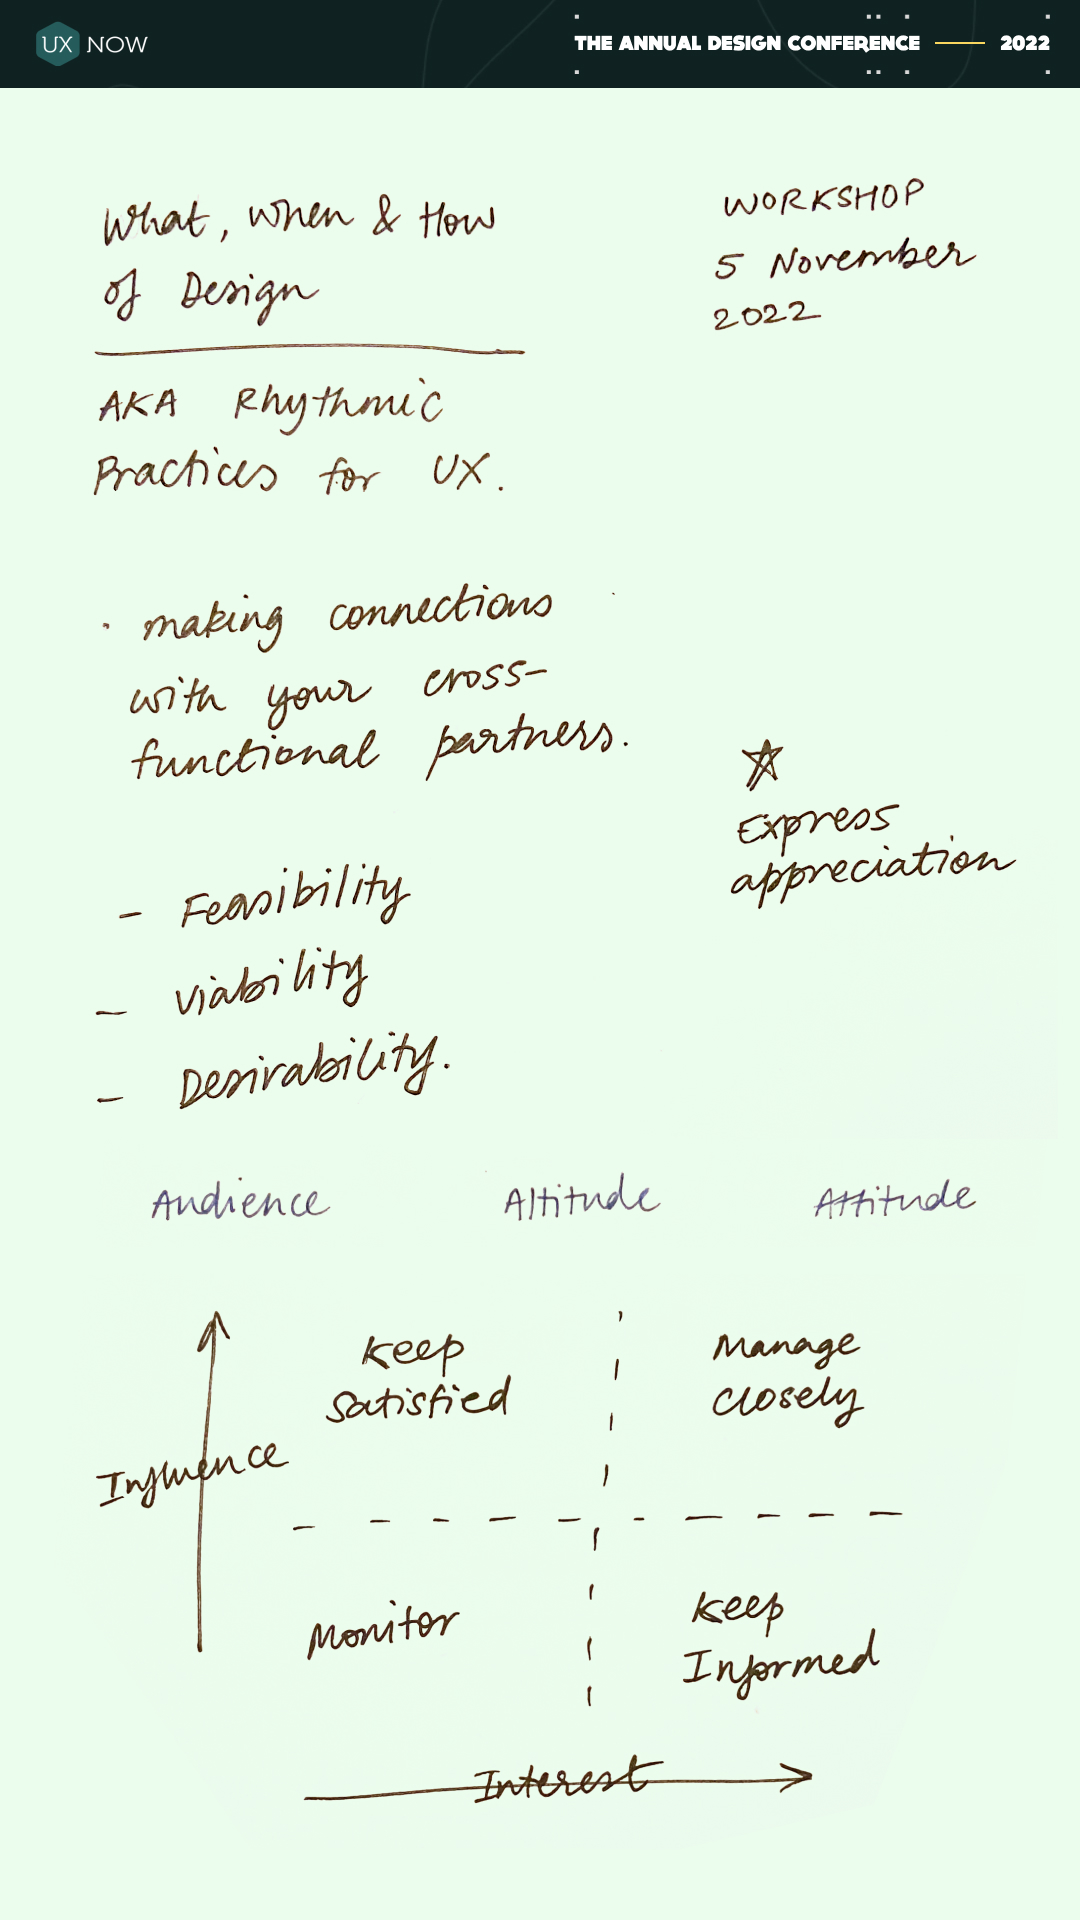 UX NOW
THE ANNUAL DESIGN CONFERENCE — 2022
What, when & How
of Design
WORKSHOP
5 November
2022
AKA Rhythmic
Practices for UX.
· making connections
with your cross-
functional partners.
☆
Express
appreciation
- Feasibility
- viability
- Desirability.
Audience Altitude Attitude
Keep
Satisfied
Manage
closely
Influence
Monitor
Keep
Informed
Interest